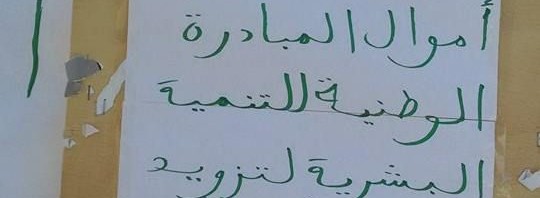 أموال المبادرة
الوطنية للتنمية
البشرية لتزويد